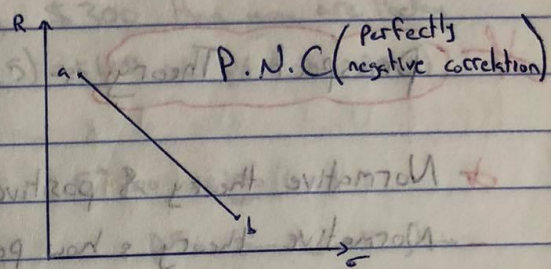 R
a
P.N.C (perfectly
negative correlation)
b
σ